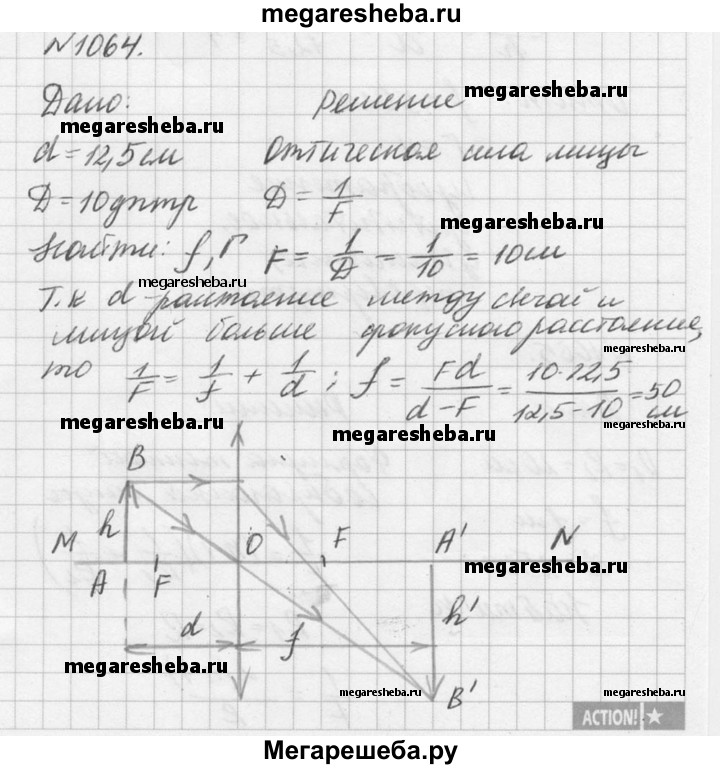 megaresheba.ru
N1064.
Дано: Решение
megaresheba.ru
megaresheba.ru
d = 12,5 см Оптическая сила линзы
D = 10 дптр D = 1/F
megaresheba.ru
Найти: f, Г F = 1/D = 1/10 = 10 см
megaresheba.ru
Т.к d - расстояние между свечой и
линзой больше фокусного расстояние,
megaresheba.ru
то 1/F = 1/f + 1/d ; f = Fd/(d-F) = 10·12,5/(12,5-10) = 50 см
megaresheba.ru
megaresheba.ru
megaresheba.ru
B
h
M O F A' N
A F
megaresheba.ru
d f h'
megaresheba.ru
megaresheba.ru
megaresheba.ru
B'
ACTION!
Мегарешеба.ру